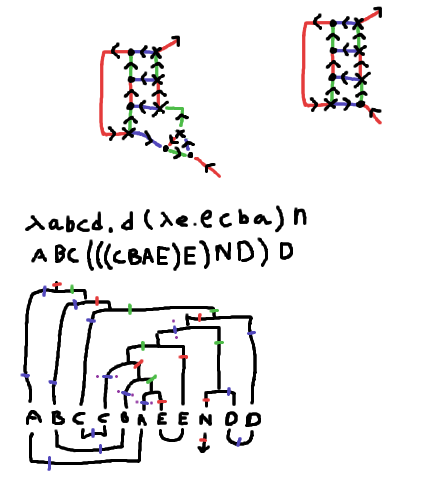 λabcd.d(λe.ecba)n
ABC(((CBAE)E)ND)D
A B C C B A E E N D D